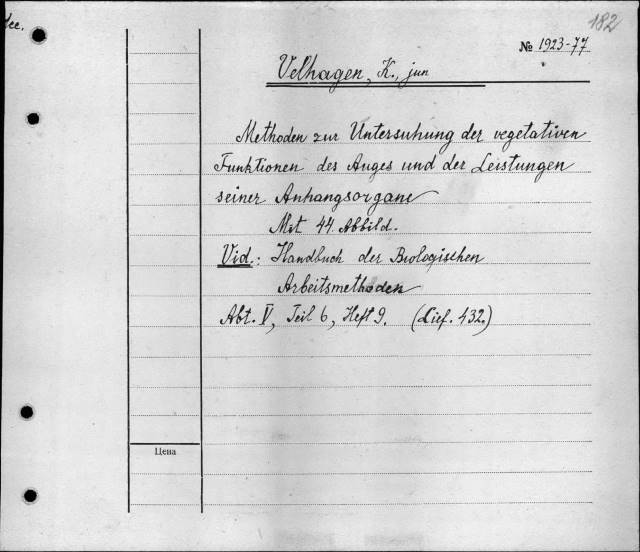 182
№ 1923-77
Velhagen, K., jun
Methoden zur Untersuhung der vegetativen
Funktionen des Auges und der Leistungen
seiner Anhangsorgane
Mit 44 Abbild.
Vid.: Handbuch der Biologischen
Arbeitsmethoden
Abt. V, Teil 6, Heft 9. (Lief. 432.)
Цена